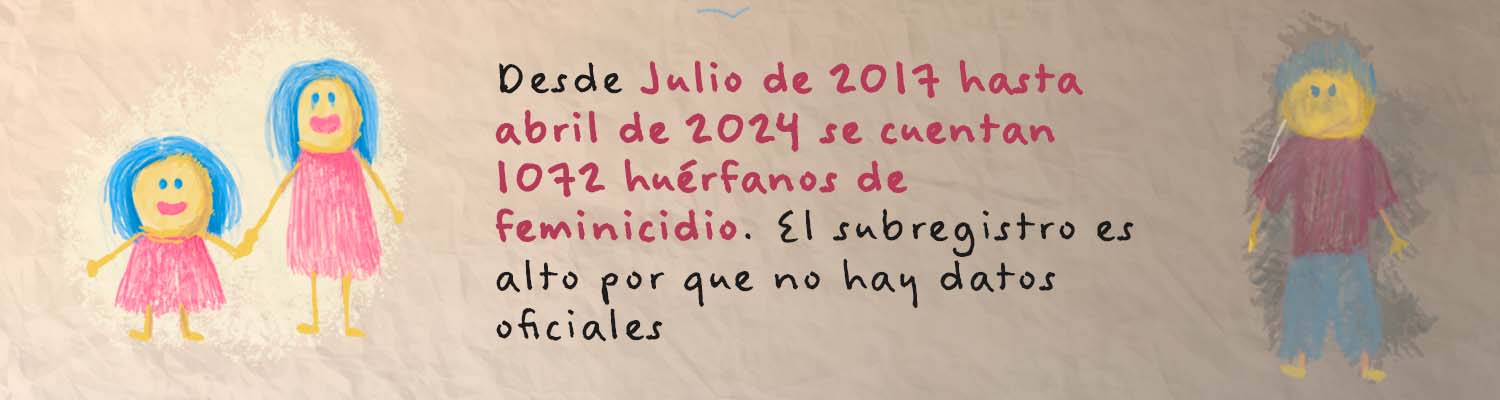 Desde Julio de 2017 hasta
abril de 2024 se cuentan
1072 huérfanos de
feminicidio. El subregistro es
alto por que no hay datos
oficiales